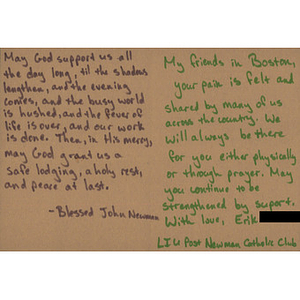 May God support us all
the day long, 'til the shadows
lengthen, and the evening
comes, and the busy world
is hushed, and the fever of
life is over, and our work
is done. Then, in His merry,
may God grant us a
safe lodging, a holy rest,
and peace at last.
- Blessed John Newman
My friends in Boston,
your pain is felt and
shared by many of us
across the country. We
will always be there
for you either physically
or through prayer. May
you continue to be
strengthened by suport.
With love, Erik
LIU Post Newman Catholic Club